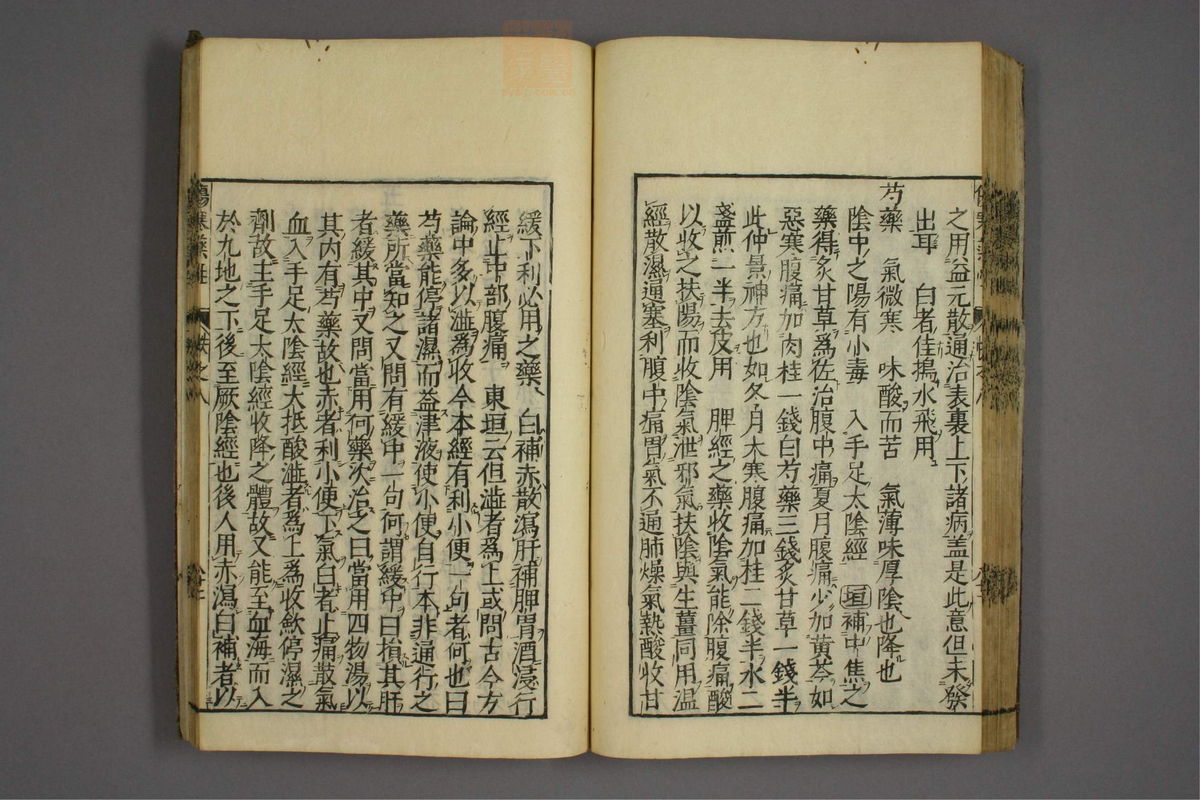 之用益元散通治表裏上下諸病盖是此意但未發
出耳　白者佳搗水飛用
芍藥　氣微寒　味酸而苦　氣薄味厚陰也降也
陰中之陽有小毒　入手足太陰經　垣補中焦之
藥得炙甘草爲佐治腹中痛夏月腹痛少加黄芩如
惡寒腹痛加肉桂一錢白芍藥三錢炙甘草一錢半
此仲景神方也如冬月大寒腹痛加桂二錢半水二
盞煎一半去皮用　脾經之藥收陰氣能除腹痛酸
以收之扶陽而收陰氣泄邪氣扶陰與生薑同用温
經散濕通塞利腹中痛胃氣不通肺燥氣熱酸收甘
緩下利必用之藥白補赤散瀉肝補脾胃酒浸行
經止中部腹痛　東垣云但澁者爲上或問古今方
論中多以澁爲收今本經有利小便一句者何也曰
芍藥能停諸濕而益津液使小便自行本非通行之
藥所當知之又問有緩中一句何謂緩中曰指其肝
者緩其中又問當用何藥次治之曰當用四物湯以
其内有芍藥故也赤者利小便下氣白者止痛散氣
血入手足太陰經大抵酸澁者爲上爲收斂停濕之
劑故主手足太陰經收降之體故又能至血海而入
於九地之下後至厥陰經也後人用赤瀉白補者以
傷寒藥性
卷之八